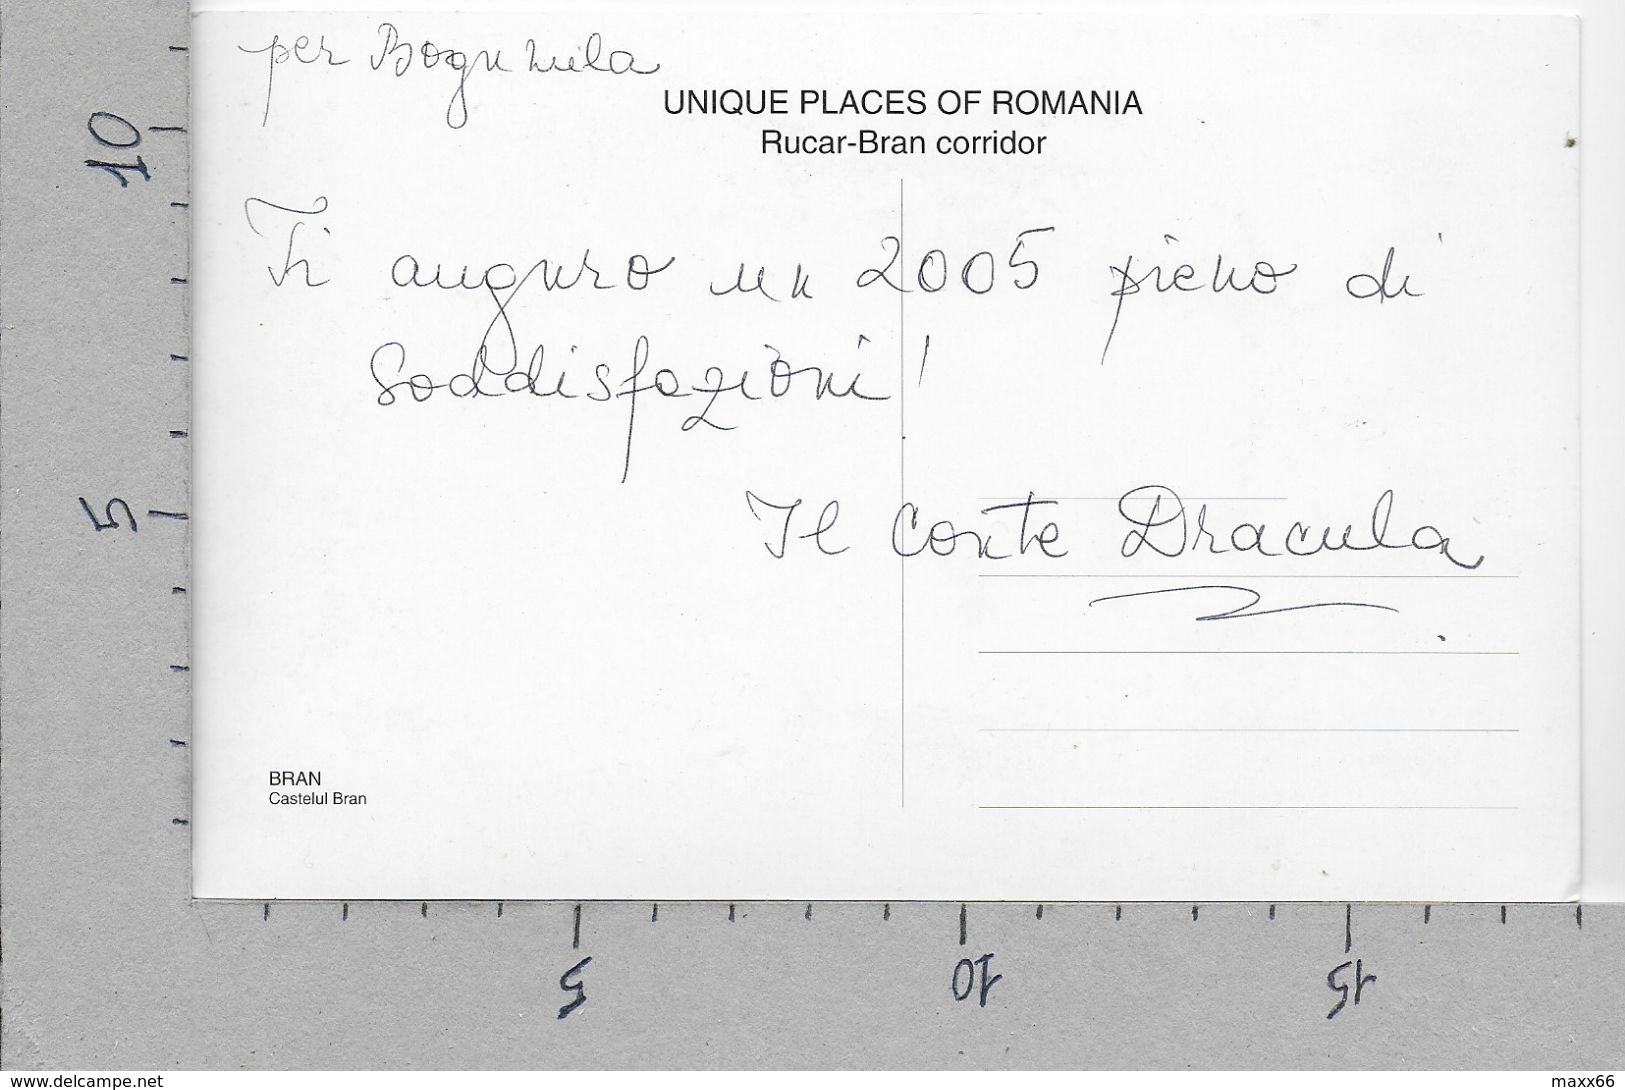 per Bogumila
UNIQUE PLACES OF ROMANIA
Rucar-Bran corridor
Ti auguro un 2005 pieno di
soddisfazioni!
Il Conte Dracula
BRAN
Castelul Bran
10
5
5
10
15
www.delcampe.net
maxx66